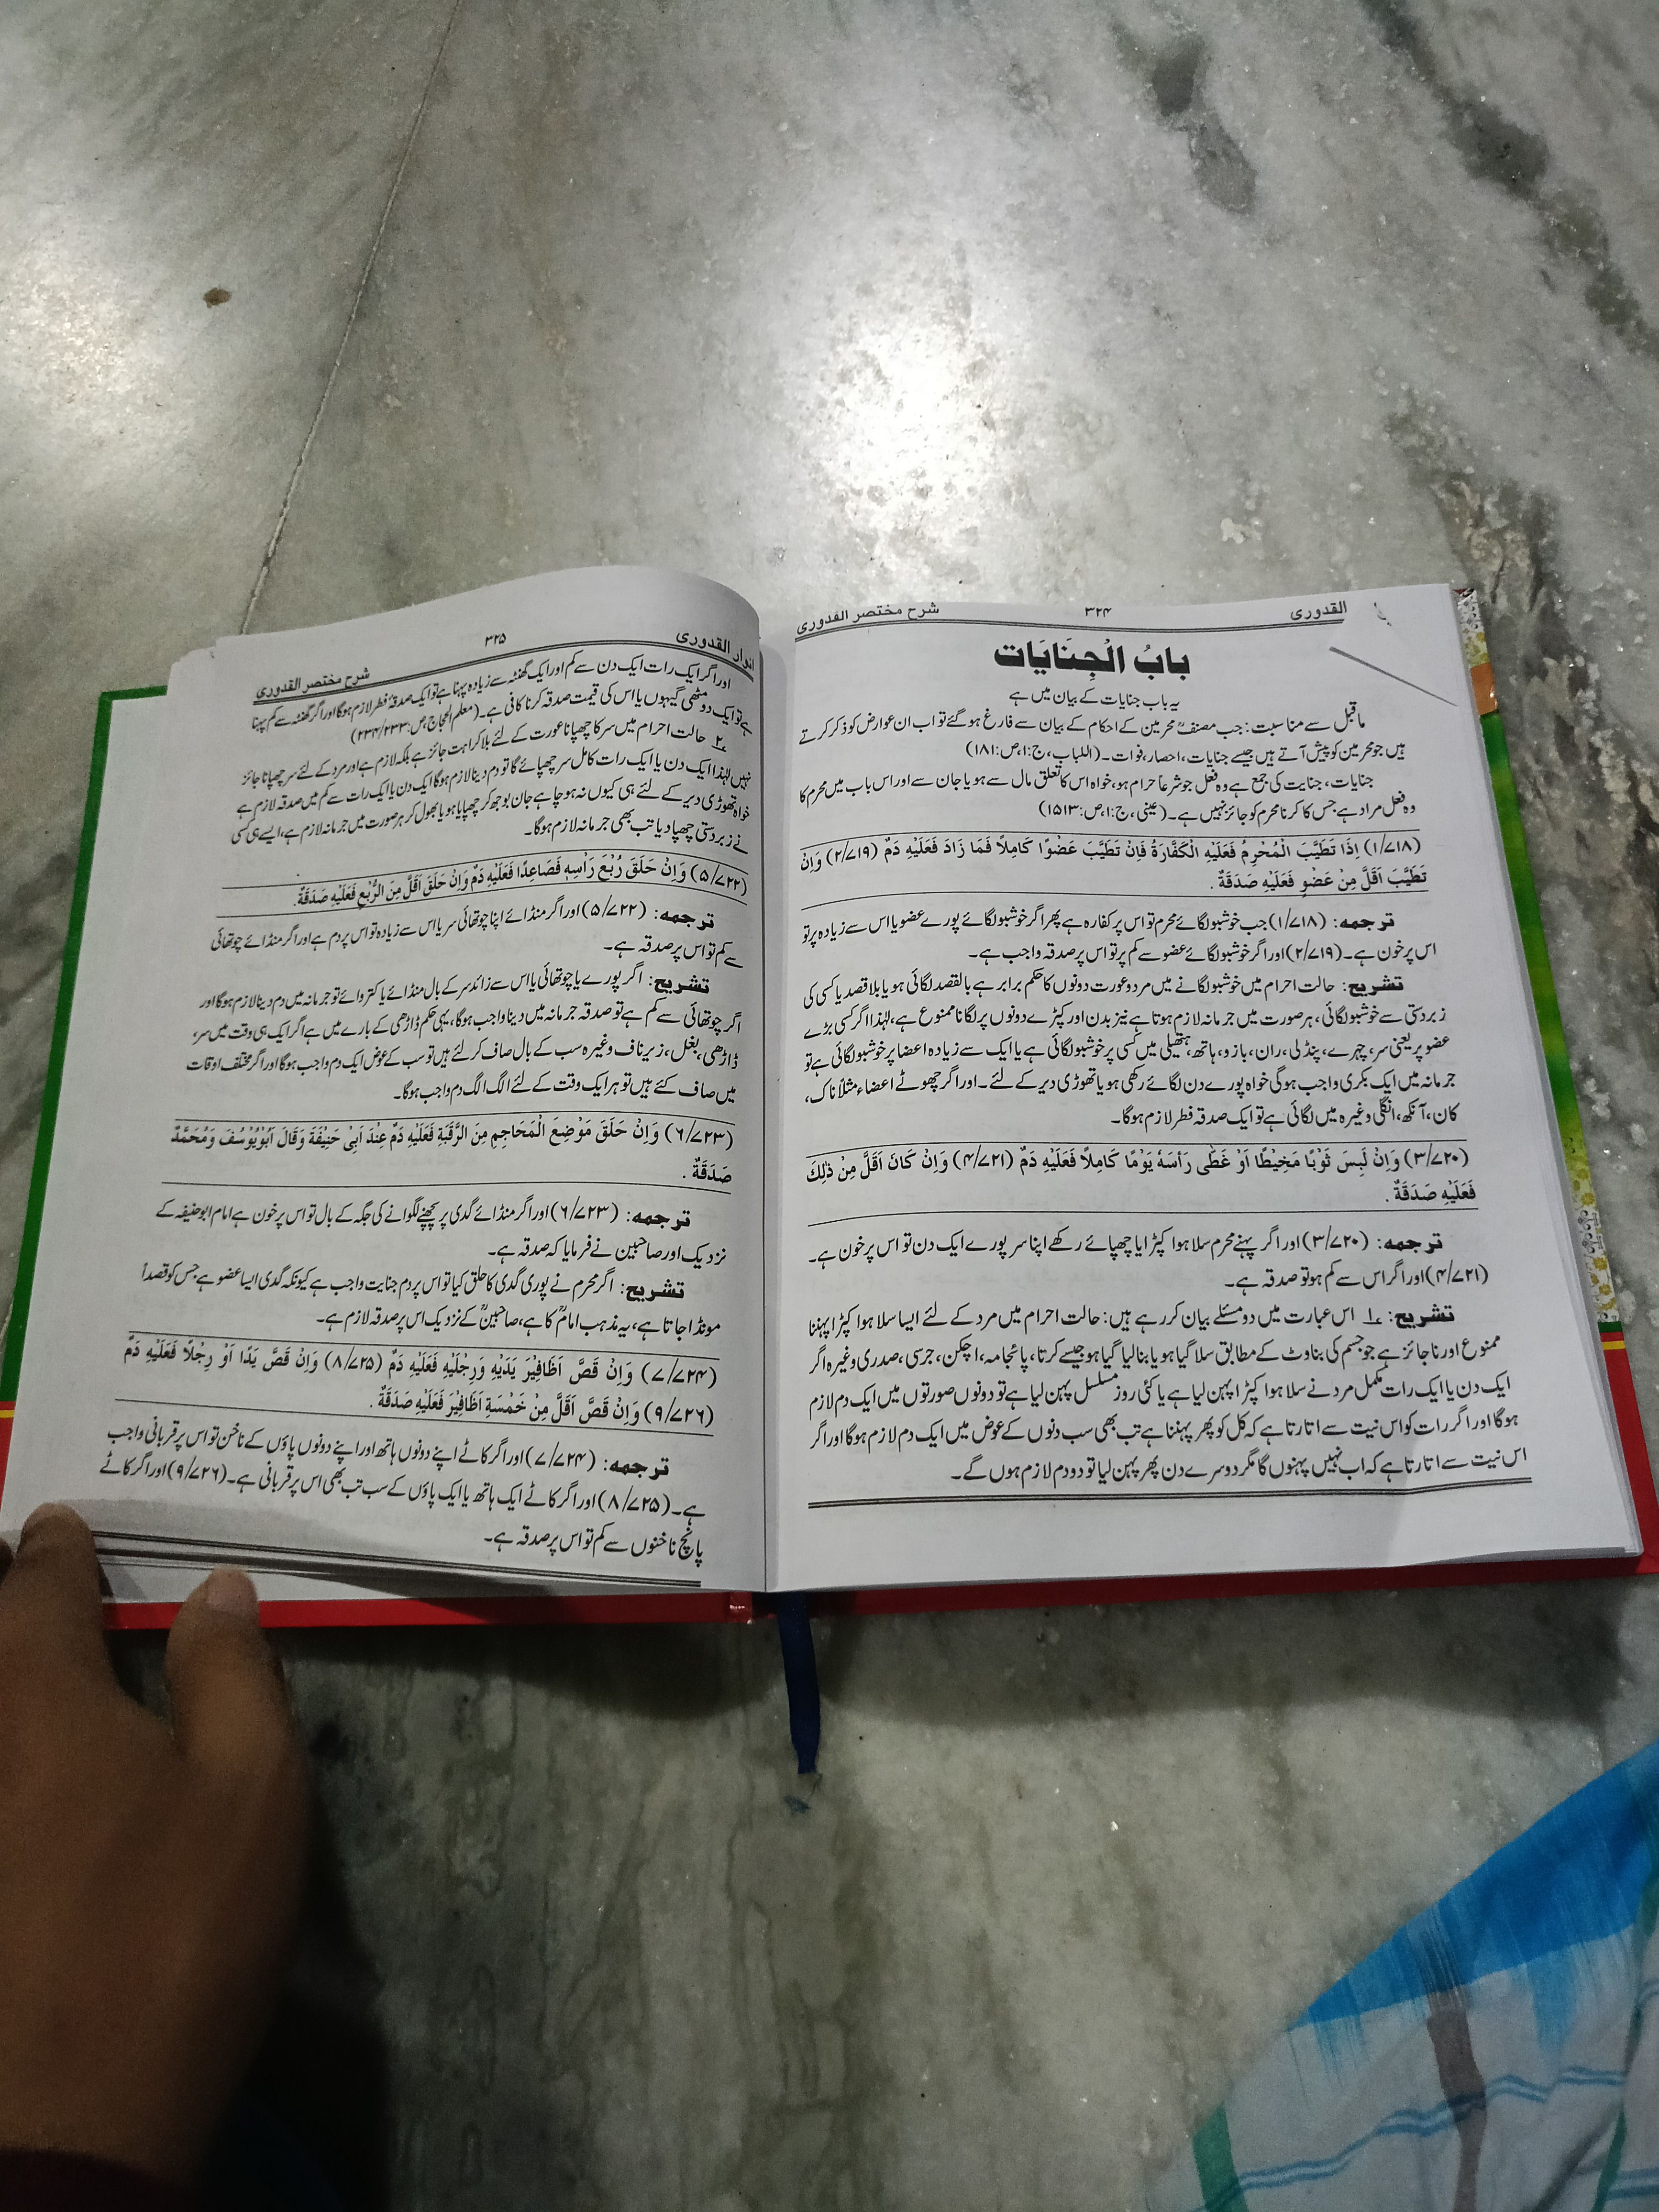 القدوری ۳۲۴ شرح مختصر القدوری
بابُ الْجِنَایَات
یہ باب جنایات کے بیان میں ہے
ماقبل سے مناسبت: جب مصنفؒ محرمین کے احکام کے بیان سے فارغ ہوگئے تو اب ان عوارض کو ذکر کرتے
ہیں جو محرمین کو پیش آتے ہیں جیسے جنایات، احصار، فوات۔ (اللباب، ج:۱،ص:۱۸۱)
جنایات، جنایت کی جمع ہے وہ فعل جو شرعاً حرام ہو، خواہ اس کا تعلق مال سے ہو یا جان سے اور اس باب میں محرم کا
وہ فعل مراد ہے جس کا کرنا محرم کو جائز نہیں ہے۔ (عینی، ج:۱،ص:۱۵۱۳)
(۱/۷۱۸) اِذَا تَطَیَّبَ الْمُحْرِمُ فَعَلَیْہِ الْکَفَّارَۃُ فَاِنْ تَطَیَّبَ عَضْوًا کَامِلًا فَمَا زَادَ فَعَلَیْہِ دَمٌ (۲/۷۱۹) وَاِنْ
تَطَیَّبَ اَقَلَّ مِنْ عَضْوٍ فَعَلَیْہِ صَدَقَۃٌ .
ترجمہ: (۱/۷۱۸) جب خوشبو لگائے محرم تو اس پر کفارہ ہے پھر اگر خوشبو لگائے پورے عضو یا اس سے زیادہ پر تو
اس پر خون ہے۔ (۲/۷۱۹) اور اگر خوشبو لگائے عضو سے کم پر تو اس پر صدقہ واجب ہے۔
تشریح: حالت احرام میں خوشبو لگانے میں مرد و عورت دونوں کا حکم برابر ہے بالقصد لگائی ہو یا بلاقصد یا کسی کی
زبردستی سے خوشبو لگائی، ہر صورت میں جرمانہ لازم ہوتا ہے نیز بدن اور کپڑے دونوں پر لگانا ممنوع ہے، لہٰذا اگر کسی بڑے
عضو پر یعنی سر، چہرے، پنڈلی، ران، بازو، ہاتھ، ہتھیلی میں کسی پر خوشبو لگائی ہے یا ایک سے زیادہ اعضا پر خوشبو لگائی ہے تو
جرمانہ میں ایک بکری واجب ہوگی خواہ پورے دن لگائے رکھی ہو یا تھوڑی دیر کے لئے۔ اور اگر چھوٹے اعضاء مثلاً ناک،
کان، آنکھ، انگلی وغیرہ میں لگائی ہے تو ایک صدقہ فطر لازم ہوگا۔
(۳/۷۲۰) وَاِنْ لَبِسَ ثَوْبًا مَخِیْطًا اَوْ غَطّٰی رَأسَہٗ یَوْمًا کَامِلًا فَعَلَیْہِ دَمٌ (۴/۷۲۱) وَاِنْ کَانَ اَقَلَّ مِنْ ذٰلِکَ
فَعَلَیْہِ صَدَقَۃٌ .
ترجمہ: (۳/۷۲۰) اور اگر پہنے محرم سلا ہوا کپڑا یا چھپائے رکھے اپنا سر پورے ایک دن تو اس پر خون ہے۔
(۴/۷۲۱) اور اگر اس سے کم ہو تو صدقہ ہے۔
تشریح: ۱؎ اس عبارت میں دو مسئلے بیان کر رہے ہیں: حالت احرام میں مرد کے لئے ایسا سلا ہوا کپڑا پہننا
ممنوع اور ناجائز ہے جو جسم کی بناوٹ کے مطابق سلا گیا ہو یا بنا لیا گیا ہو جیسے کرتا، پائجامہ، اچکن، جرسی، صدری وغیرہ اگر
ایک دن یا ایک رات مکمل مرد نے سلا ہوا کپڑا پہن لیا ہے یا کئی روز مسلسل پہن لیا ہے تو دونوں صورتوں میں ایک دم لازم
ہوگا اور اگر رات کو اس نیت سے اتارتا ہے کہ کل کو پھر پہننا ہے تب بھی سب دنوں کے عوض میں ایک دم لازم ہوگا اور اگر
اس نیت سے اتارتا ہے کہ اب نہیں پہنوں گا مگر دوسرے دن پھر پہن لیا تو دو دم لازم ہوں گے۔
انوار القدوری ۳۲۵ شرح مختصر القدوری
اور اگر ایک رات ایک دن سے کم اور ایک گھنٹہ سے زیادہ پہنا ہے تو ایک صدقۂ فطر لازم ہوگا اور اگر گھنٹہ سے کم پہنا
ہے تو ایک دو مٹھی گیہوں یا اس کی قیمت صدقہ کرنا کافی ہے۔ (معلم الحجاج،ص:۲۳۴/۲۳۳)
۲؎ حالت احرام میں سر کا چھپانا عورت کے لئے بلا کراہت جائز ہے بلکہ لازم ہے اور مرد کے لئے سر چھپانا جائز
نہیں لہٰذا ایک دن یا ایک رات کامل سر چھپائے گا تو دم دینا لازم ہوگا ایک دن یا ایک رات سے کم میں صدقہ لازم ہے
خواہ تھوڑی دیر کے لئے ہی کیوں نہ ہو چاہے جان بوجھ کر چھپایا ہو یا بھول کر ہر صورت میں جرمانہ لازم ہے، ایسے ہی کسی
نے زبردستی چھپا دیا تب بھی جرمانہ لازم ہوگا۔
(۵/۷۲۲) وَاِنْ حَلَقَ رُبْعَ رَاْسِہٖ فَصَاعِدًا فَعَلَیْہِ دَمٌ وَاِنْ حَلَقَ اَقَلَّ مِنَ الرُّبْعِ فَعَلَیْہِ صَدَقَۃٌ.
ترجمہ: (۵/۷۲۲) اور اگر منڈائے اپنا چوتھائی سر یا اس سے زیادہ تو اس پر دم ہے اور اگر منڈائے چوتھائی
سے کم تو اس پر صدقہ ہے۔
تشریح: اگر پورے یا چوتھائی یا اس سے زائد سر کے بال منڈائے یا کتروائے تو جرمانہ میں دم دینا لازم ہوگا اور
اگر چوتھائی سے کم ہے تو صدقہ جرمانہ میں دینا واجب ہوگا، یہی حکم ڈاڑھی کے بارے میں ہے اگر ایک ہی وقت میں سر،
ڈاڑھی، بغل، زیر ناف وغیرہ سب کے بال صاف کرلئے ہیں تو سب کے عوض ایک دم واجب ہوگا اور اگر مختلف اوقات
میں صاف کئے ہیں تو ہر ایک وقت کے لئے الگ الگ دم واجب ہوگا۔
(۶/۷۲۳) وَاِنْ حَلَقَ مَوْضِعَ الْمَحَاجِمِ مِنَ الرَّقَبَۃِ فَعَلَیْہِ دَمٌ عِنْدَ اَبِیْ حَنِیْفَۃَ وَقَالَ اَبُوْیُوْسُفَ وَمُحَمَّدٌ
صَدَقَۃٌ .
ترجمہ: (۶/۷۲۳) اور اگر منڈائے گدی پر پچھنے لگوانے کی جگہ کے بال تو اس پر خون ہے امام ابوحنیفہ کے
نزدیک اور صاحبین نے فرمایا کہ صدقہ ہے۔
تشریح: اگر محرم نے پوری گدی کا حلق کیا تو اس پر دم جنایت واجب ہے کیونکہ گدی ایسا عضو ہے جس کو قصداً
مونڈا جاتا ہے، یہ مذہب امامؒ کا ہے، صاحبینؒ کے نزدیک اس پر صدقہ لازم ہے۔
(۷/۷۲۴) وَاِنْ قَصَّ اَظَافِیْرَ یَدَیْہِ وَرِجْلَیْہِ فَعَلَیْہِ دَمٌ (۸/۷۲۵) وَاِنْ قَصَّ یَدًا اَوْ رِجْلًا فَعَلَیْہِ دَمٌ
(۹/۷۲۶) وَاِنْ قَصَّ اَقَلَّ مِنْ خَمْسَۃِ اَظَافِیْرَ فَعَلَیْہِ صَدَقَۃٌ .
ترجمہ: (۷/۷۲۴) اور اگر کاٹے اپنے دونوں ہاتھ اور اپنے دونوں پاؤں کے ناخن تو اس پر قربانی واجب
ہے۔ (۸/۷۲۵) اور اگر کاٹے ایک ہاتھ یا ایک پاؤں کے سب تب بھی اس پر قربانی ہے۔ (۹/۷۲۶) اور اگر کاٹے
پانچ ناخنوں سے کم تو اس پر صدقہ ہے۔